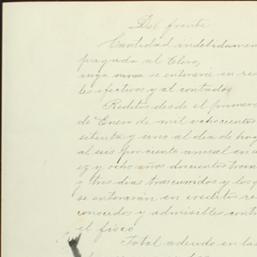 Del frente
Cantidad indebidamen
pagada al Clero,
cuya suma se enterará en rea
les efectivos y al contado,
Reditos desde el primero
de Enero de mil ochociento
setenta y uno al dia de hoy
al seis por ciento anual en di
ez y ocho años doscientos trein
y tres dias trascurridos y los q
se enteraran en creditos re
conocidos y admisibles cont
el fisco
Total adeudo en la